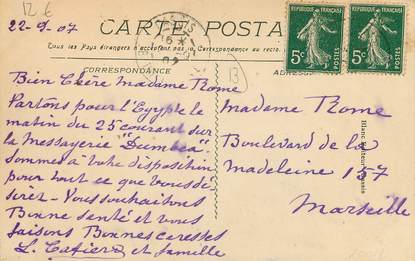 12 €
22-9-07
CARTE POSTA
Tous les Pays étrangers n'acceptent pas la Correspondance au recto
CORRESPONDANCE
Bien Chère Madame Rome
Partons pour l'Egypte le
matin du 25 courant sur
la Messagerie "Dumbéa"
sommes a Votre disposition
pour tout ce que vous dé-
sirez - Vous souhaitons
Bonne santé et vous
faisons Bonnes caresses
et famille
13
5c
POSTES
5c
POSTES
Madame Rome
Boulevard de la
Madeleine 157
Marseille